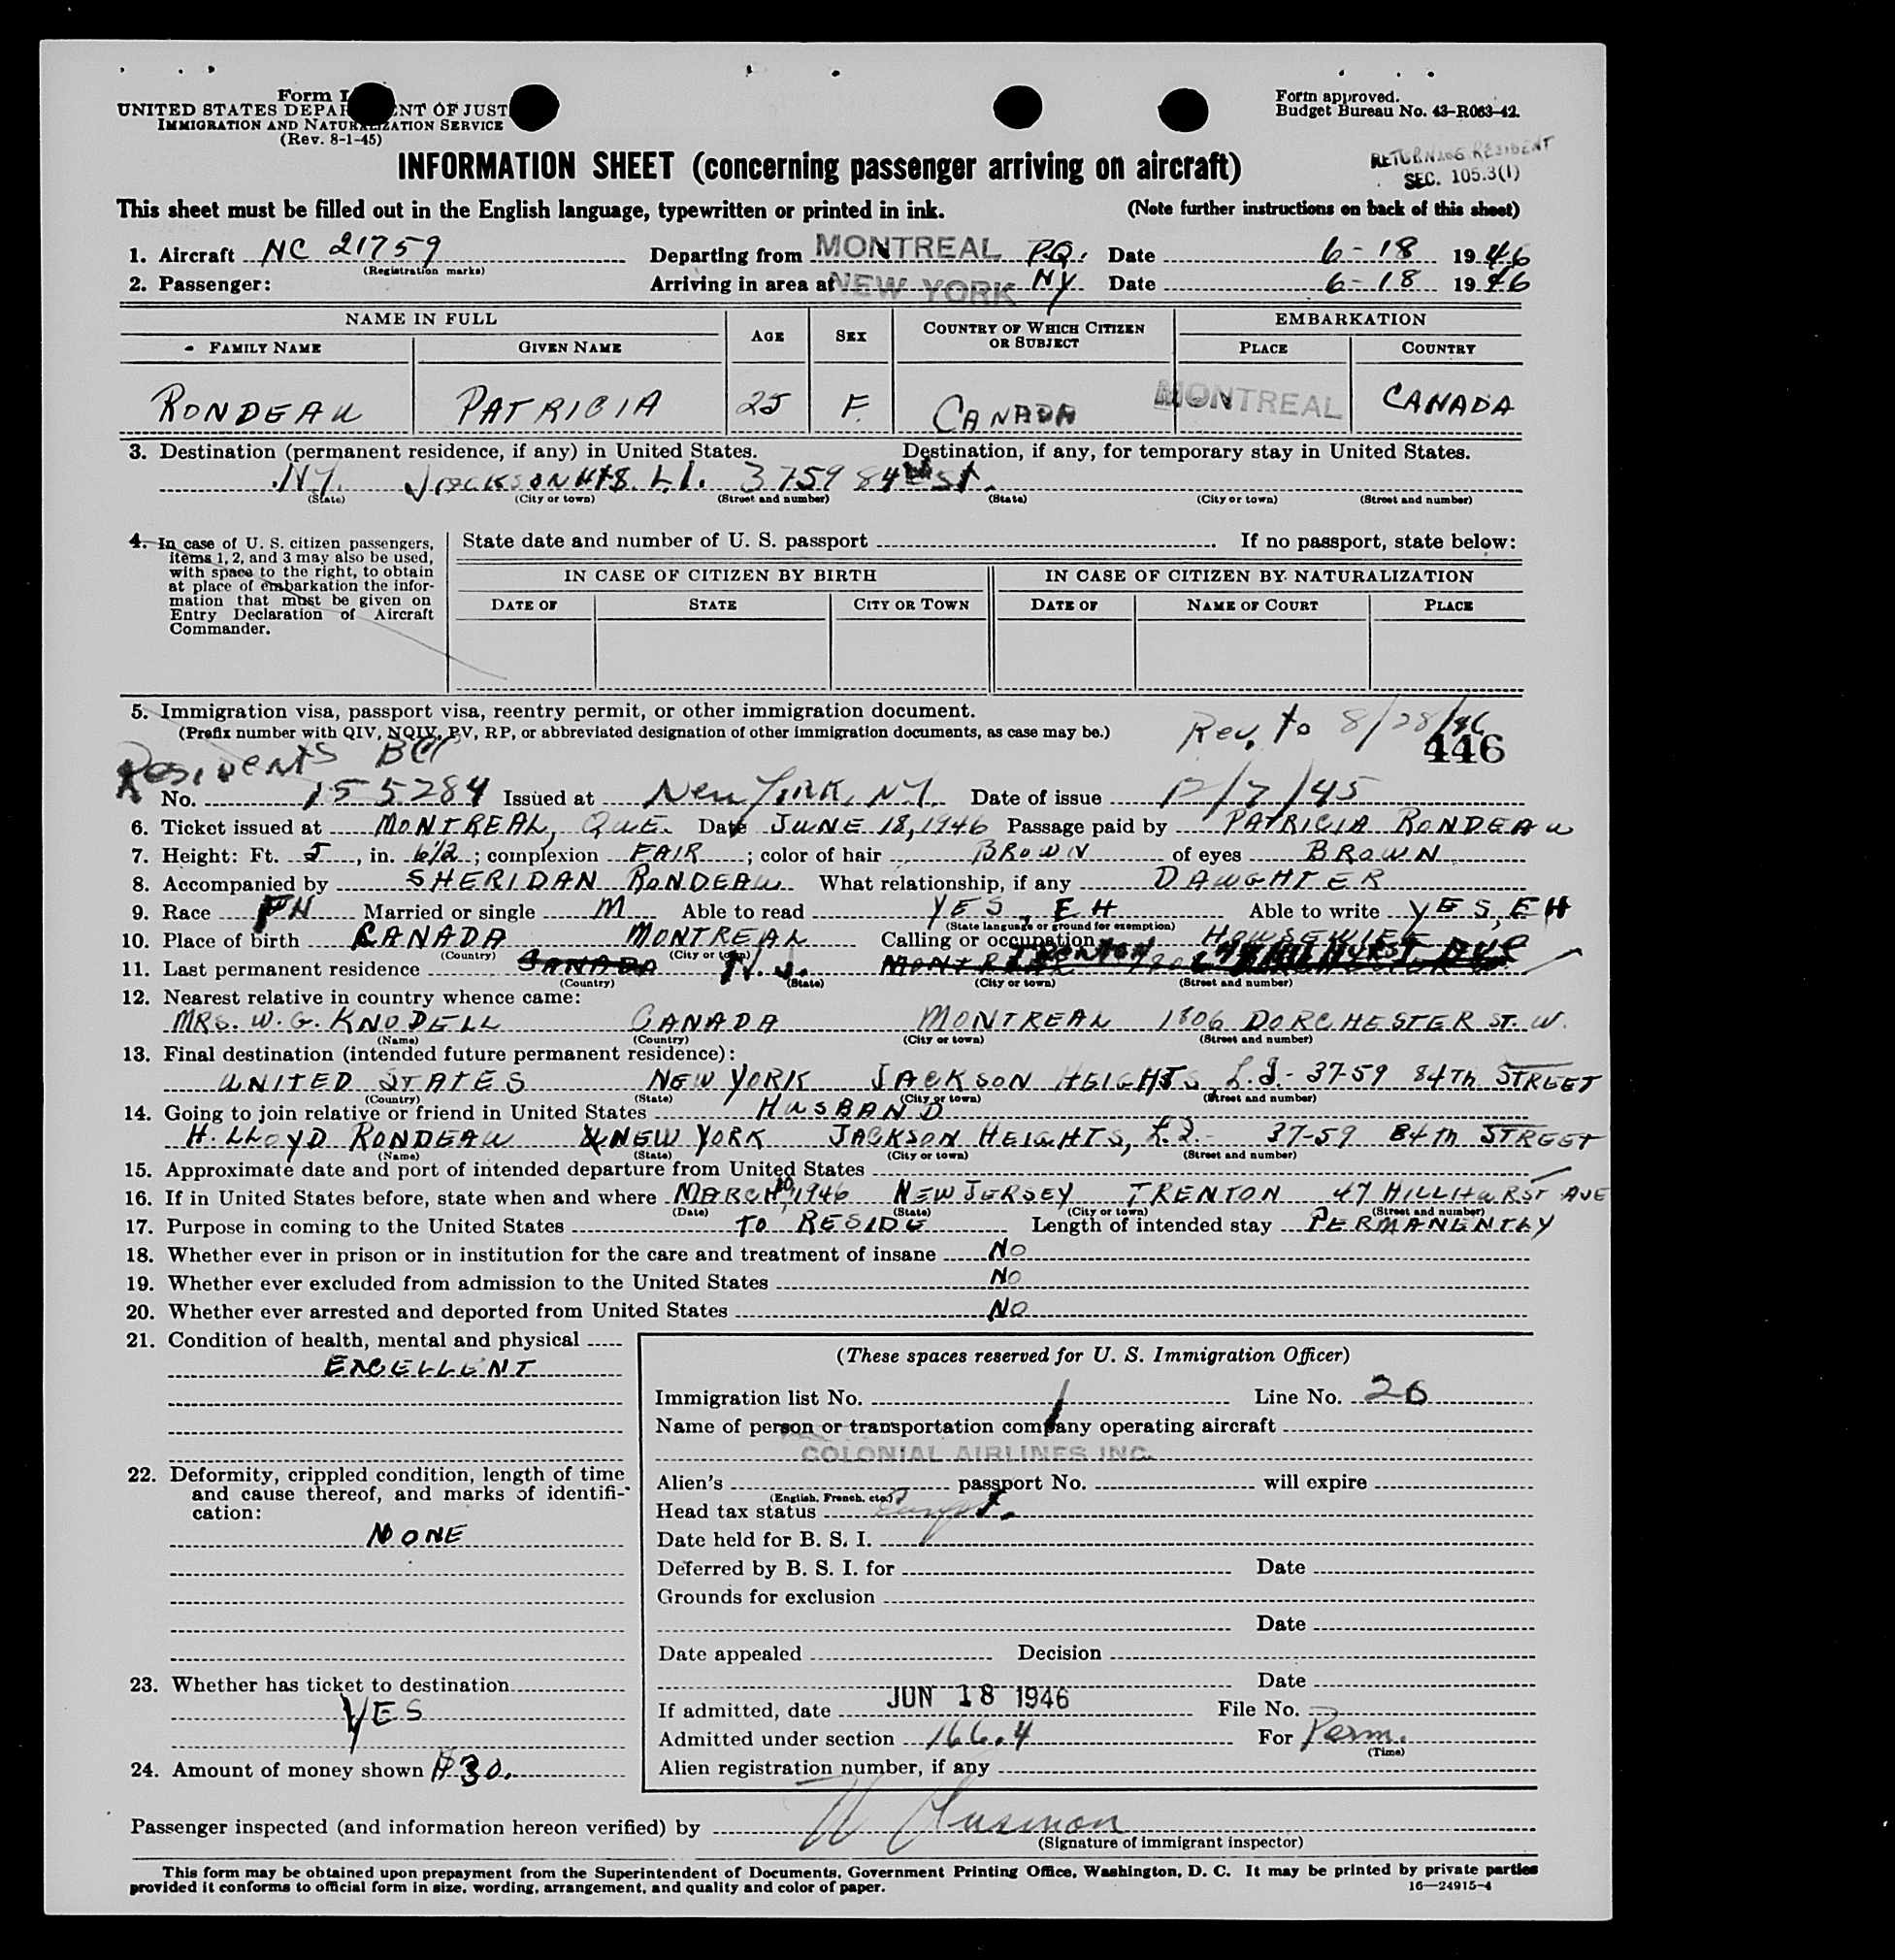 Form I
UNITED STATES DEPAR ENT OF JUST
IMMIGRATION AND NATURALIZATION SERVICE
(Rev. 8-1-45)
Form approved.
Budget Bureau No. 43-R063-42.
INFORMATION SHEET (concerning passenger arriving on aircraft)
RETURNING RESIDENT
SEC. 105.3(1)
This sheet must be filled out in the English language, typewritten or printed in ink. (Note further instructions on back of this sheet)
1. Aircraft NC 21759 Departing from MONTREAL P.Q. Date 6-18 1946
(Registration marks)
2. Passenger: Arriving in area at NEW YORK NY Date 6-18 1946
NAME IN FULL AGE SEX COUNTRY OF WHICH CITIZEN OR SUBJECT EMBARKATION
FAMILY NAME GIVEN NAME PLACE COUNTRY
RONDEAU PATRICIA 25 F. CANADA MONTREAL CANADA
3. Destination (permanent residence, if any) in United States. Destination, if any, for temporary stay in United States.
N.Y. JACKSON HTS. L.I. 3759 84th St.
(State) (City or town) (Street and number) (State) (City or town) (Street and number)
4. In case of U. S. citizen passengers, items 1, 2, and 3 may also be used, with space to the right, to obtain at place of embarkation the information that must be given on Entry Declaration of Aircraft Commander.
State date and number of U. S. passport If no passport, state below:
IN CASE OF CITIZEN BY BIRTH IN CASE OF CITIZEN BY NATURALIZATION
DATE OF STATE CITY OR TOWN DATE OF NAME OF COURT PLACE
5. Immigration visa, passport visa, reentry permit, or other immigration document.
(Prefix number with QIV, NQIV, PV, RP, or abbreviated designation of other immigration documents, as case may be.)
Rev. to 8/28/46
446
Residents BCC
No. 155284 Issued at New York, N.Y. Date of issue 12/7/45
6. Ticket issued at MONTREAL, QUE. Date JUNE 18, 1946 Passage paid by PATRICIA RONDEAU
7. Height: Ft. 5, in. 6 1/2; complexion FAIR; color of hair BROWN of eyes BROWN
8. Accompanied by SHERIDAN RONDEAU What relationship, if any DAUGHTER
9. Race Married or single M Able to read YES, EH Able to write YES, EH
(State language or ground for exemption)
10. Place of birth CANADA MONTREAL Calling or occupation HOUSEWIFE
(Country) (City or town)
11. Last permanent residence CANADA N.J. TRENTON
(Country) (State) (City or town) (Street and number)
12. Nearest relative in country whence came:
MRS. W. G. KNODELL CANADA MONTREAL 1806 DORCHESTER ST. W.
(Name) (Country) (City or town) (Street and number)
13. Final destination (intended future permanent residence):
UNITED STATES NEW YORK JACKSON HEIGHTS, L.I.- 37-59 84TH STREET
(Country) (State) (City or town) (Street and number)
14. Going to join relative or friend in United States HUSBAND
H. LLOYD RONDEAU NEW YORK JACKSON HEIGHTS, L.I.- 37-59 84th STREET
(Name) (State) (City or town) (Street and number)
15. Approximate date and port of intended departure from United States
16. If in United States before, state when and where MARCH 10, 1946 NEW JERSEY TRENTON 47 HILLHURST AVE
(Date) (State) (City or town) (Street and number)
17. Purpose in coming to the United States TO RESIDE Length of intended stay PERMANENTLY
18. Whether ever in prison or in institution for the care and treatment of insane NO
19. Whether ever excluded from admission to the United States NO
20. Whether ever arrested and deported from United States NO
21. Condition of health, mental and physical
EXCELLENT
22. Deformity, crippled condition, length of time and cause thereof, and marks of identification:
NONE
23. Whether has ticket to destination
YES
24. Amount of money shown $30.
(These spaces reserved for U. S. Immigration Officer)
Immigration list No. 1 Line No. 26
Name of person or transportation company operating aircraft
COLONIAL AIRLINES INC.
Alien's passport No. will expire
(English, French, etc.)
Head tax status
Date held for B. S. I.
Deferred by B. S. I. for Date
Grounds for exclusion
Date
Date appealed Decision
Date
If admitted, date JUN 18 1946 File No.
Admitted under section 166.4 For Perm.
(Time)
Alien registration number, if any
Passenger inspected (and information hereon verified) by
(Signature of immigrant inspector)
This form may be obtained upon prepayment from the Superintendent of Documents, Government Printing Office, Washington, D. C. It may be printed by private parties
provided it conforms to official form in size, wording, arrangement, and quality and color of paper.
16—24915-4